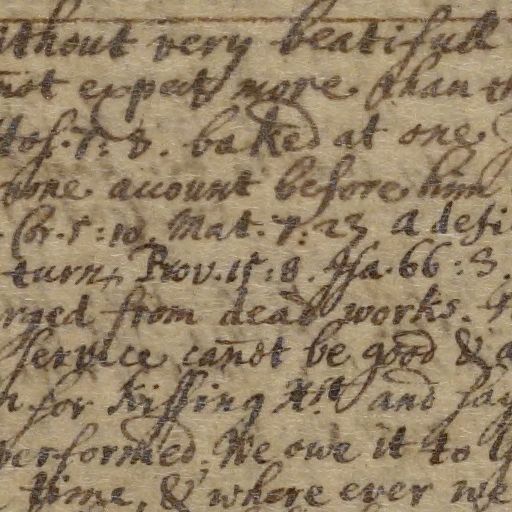 ithout very beatifull
not expect more than th
Hos. 7: 8. baked at one
none account before him
. Cor. 5: 10. Mat. 7: 23 A desi
turn, Prov. 15: 8. Isa. 66: 3.
rged from dead works.
service cañot be good &
for kissing and say
performed, We owe it to
time, & where ever we